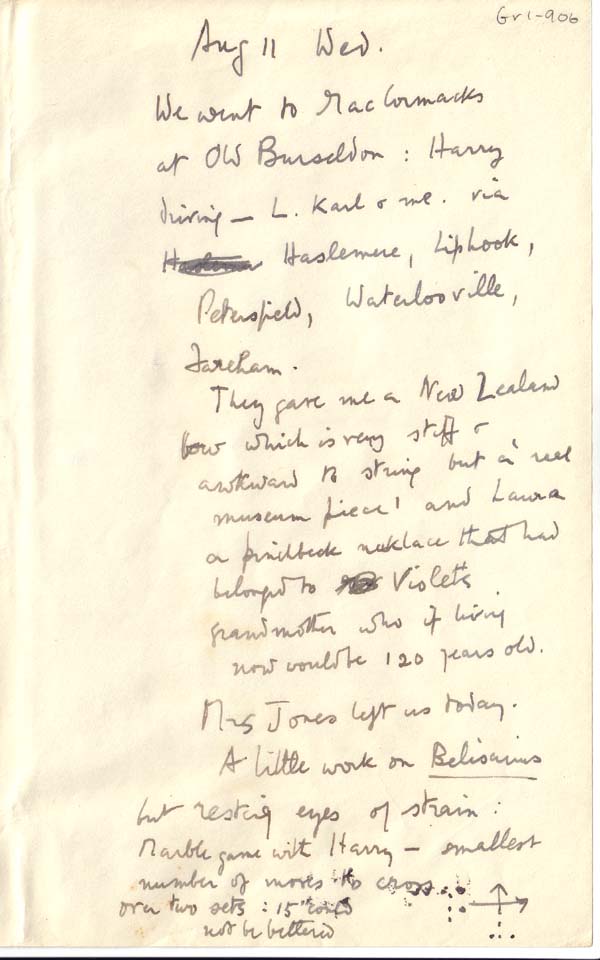 Gr1-906
Aug 11 Wed.
We went to MacCormacks
at Old Burseldon : Harry
driving — L. Karl & me. via
Haslemere, Liphook,
Petersfield, Waterlooville,
Fareham.
They gave me a New Zealand
bow which is very stiff &
awkward to string but a 'real
museum piece' and Laura
a pinchbeck necklace that had
belonged to Violets
grandmother who if living
now would be 120 years old.
Mrs Jones left us today.
A little work on Belisarius
but resting eyes of strain :
Marble game with Harry — smallest
number of moves to cross
over two sets : 15 could
not be bettered